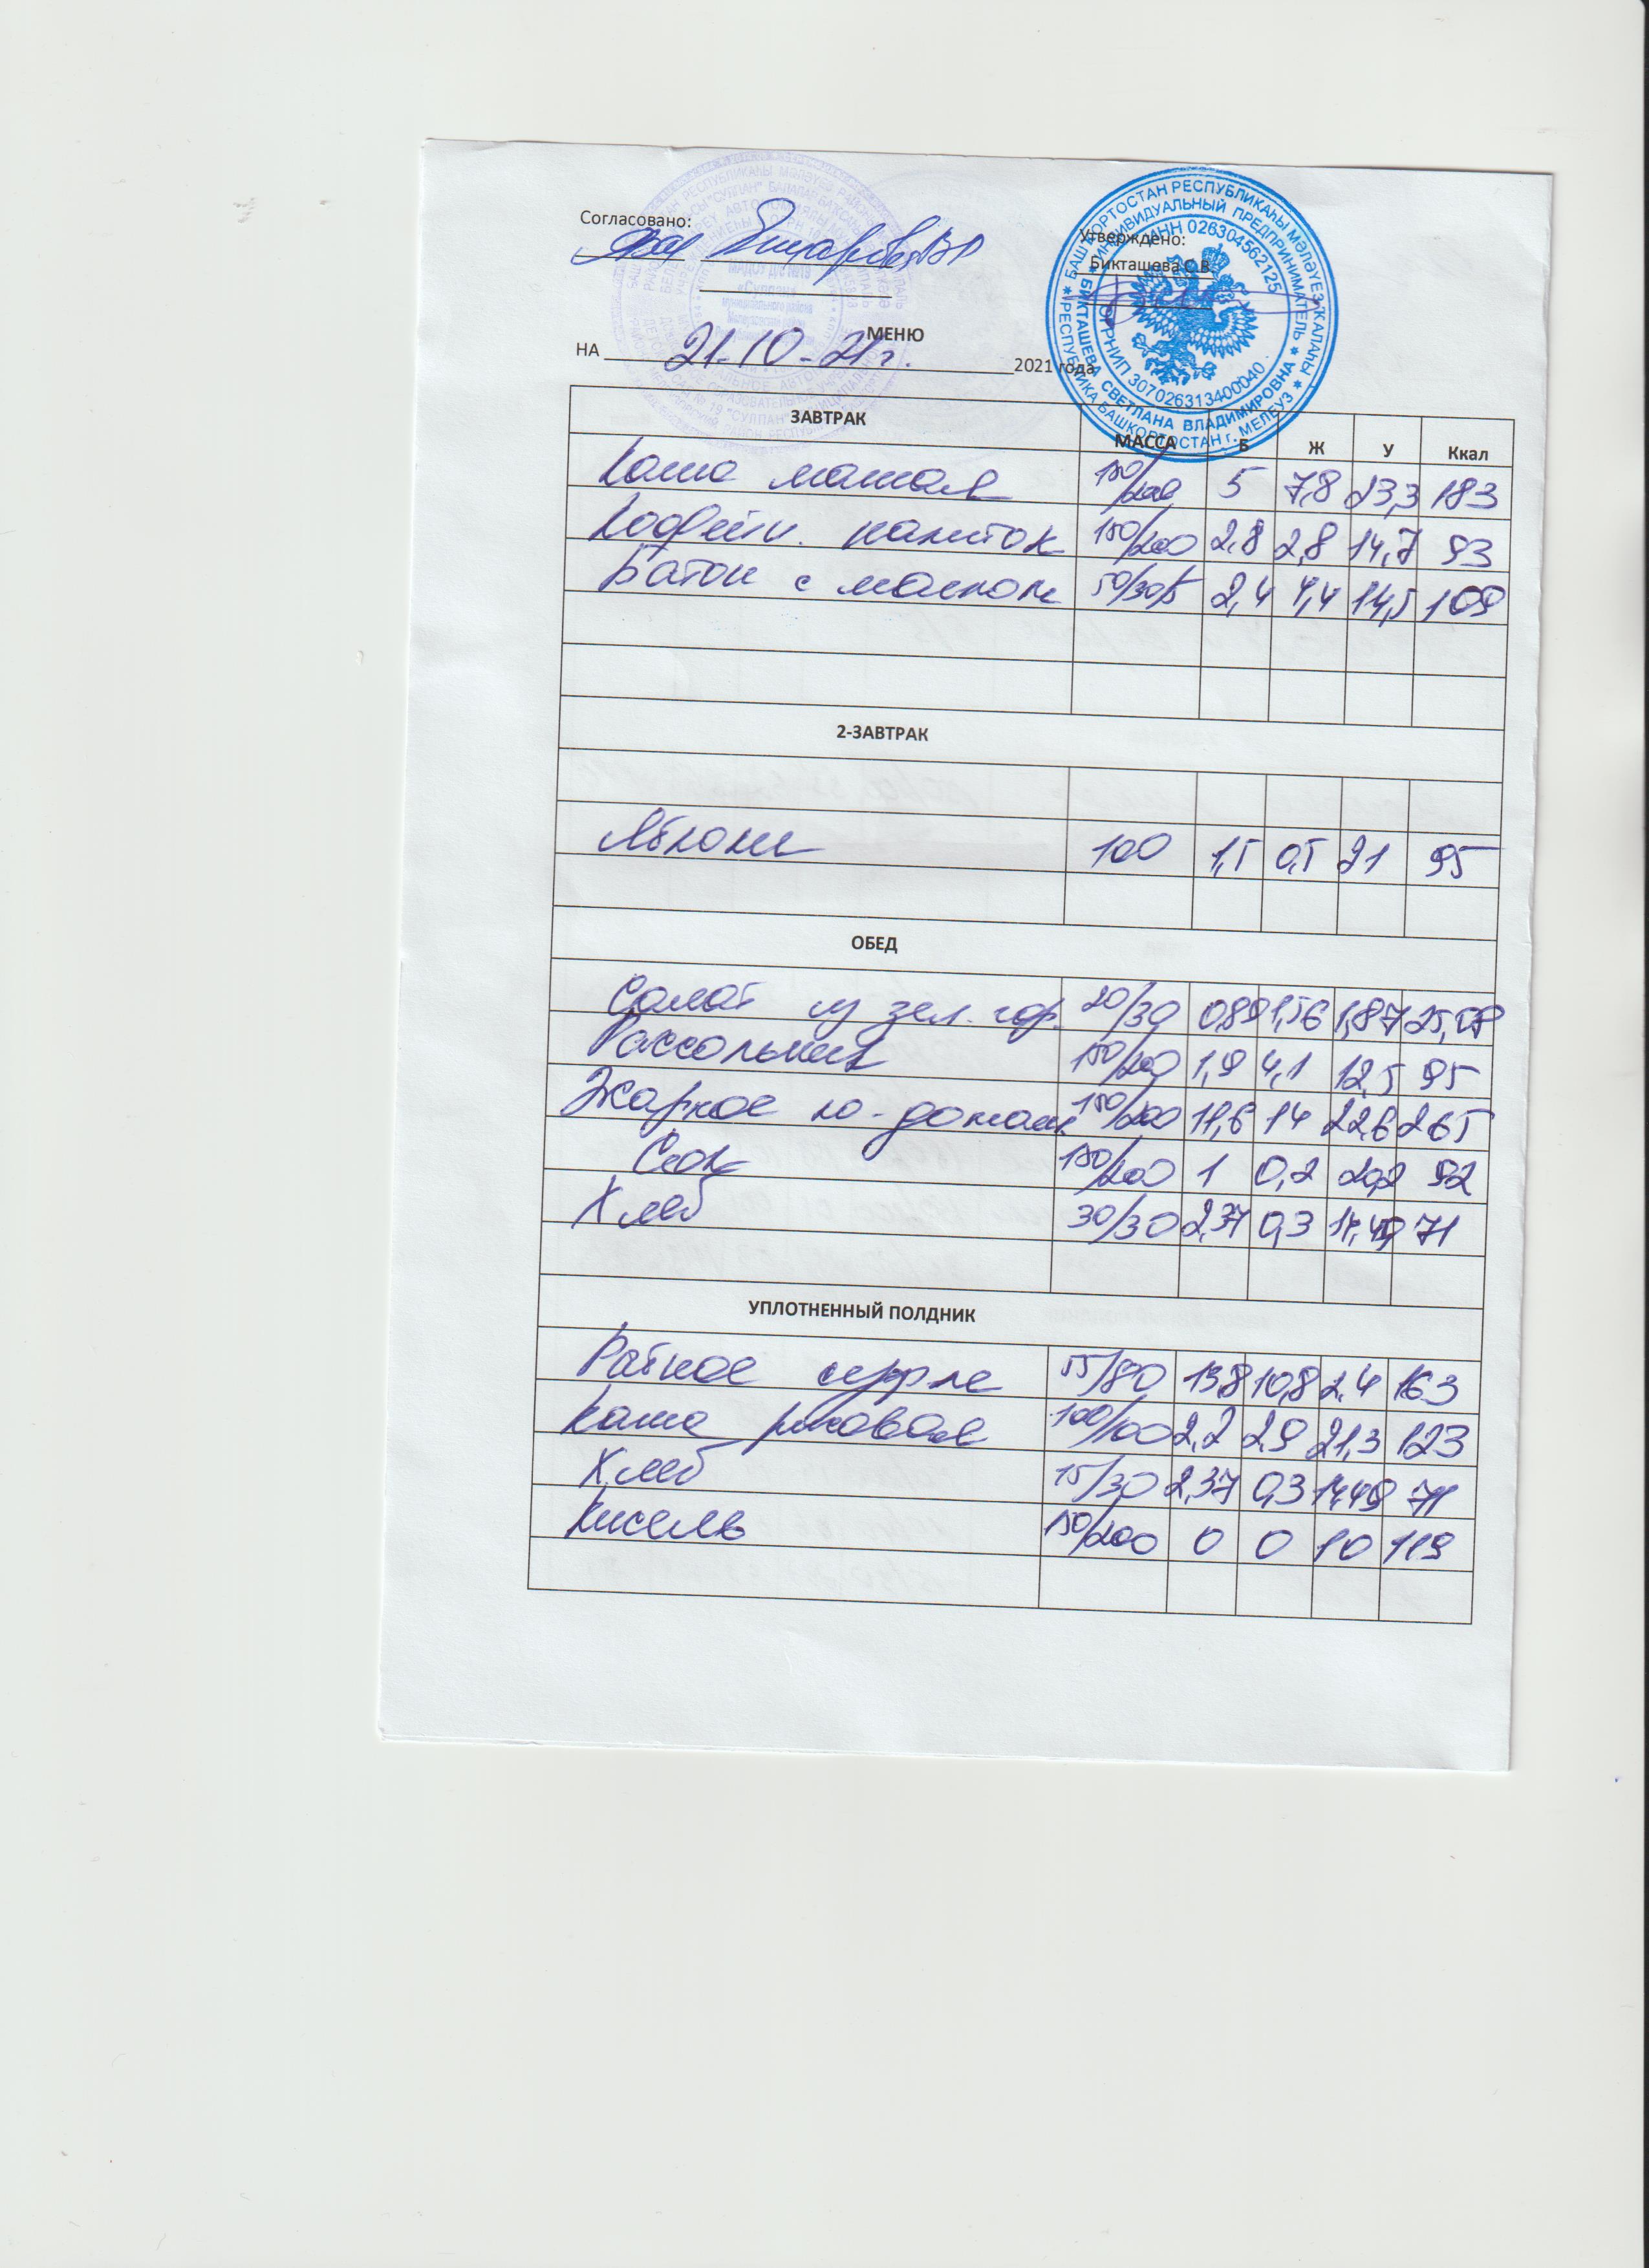 Согласовано:
Утверждено:
Бикташева С.В.
МЕНЮ
НА 21-10-21г. 2021 года
ЗАВТРАК МАССА Б Ж У Ккал
Каша манная 150/200 5 7,8 23,3 183
Кофейн. напиток 150/200 2,8 2,8 14,7 93
Батон с маслом 50/30/5 2,4 4,4 14,5 109
2-ЗАВТРАК
Яблоки 100 1,5 0,5 21 95
ОБЕД
Салат из зел. гор. 20/30 0,89 1,56 1,87 25,08
Рассольник 150/200 1,9 4,1 12,5 95
Жаркое по-домаш. 150/200 11,6 14 22,6 265
Сок 150/200 1 0,2 20,2 92
Хлеб 30/30 2,37 0,3 14,49 71
УПЛОТНЕННЫЙ ПОЛДНИК
Рыбное суфле 55/80 13,8 10,8 2,4 163
Каша рисовая 100/100 2,2 2,9 21,3 123
Хлеб 15/30 2,37 0,3 14,49 71
Кисель 150/200 0 0 10 119
БАШҠОРТОСТАН РЕСПУБЛИКАҺЫ МӘЛӘҮЕЗ ҠАЛАҺЫ
РЕСПУБЛИКА БАШКОРТОСТАН г. МЕЛЕУЗ
ИНДИВИДУАЛЬНЫЙ ПРЕДПРИНИМАТЕЛЬ
БИКТАШЕВА СВЕТЛАНА ВЛАДИМИРОВНА
ИНН 026304562125
ОГРНИП 307026313400040